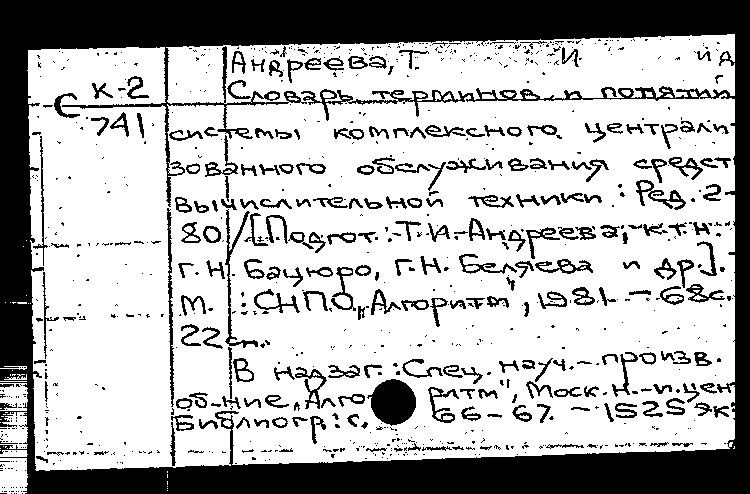 Андреева, Т. И. и д
С К-2
741
Словарь терминов и понятий
системы комплексного централи-
зованного обслуживания средств
вычислительной техники : Ред. 2-
80 / [Подгот.: Т. И. Андреева, к.т.н.
Г. Н. Бацюро, Г. Н. Беляева и др.]. -
М. : СНПО „Алгоритм", 1981. - 68с.
22 см.
В надзаг.: Спец. науч.-произв.
об-ние „Алгоритм", Моск. н.-и. цен
Библиогр.: с. 66-67. - 1525 эк